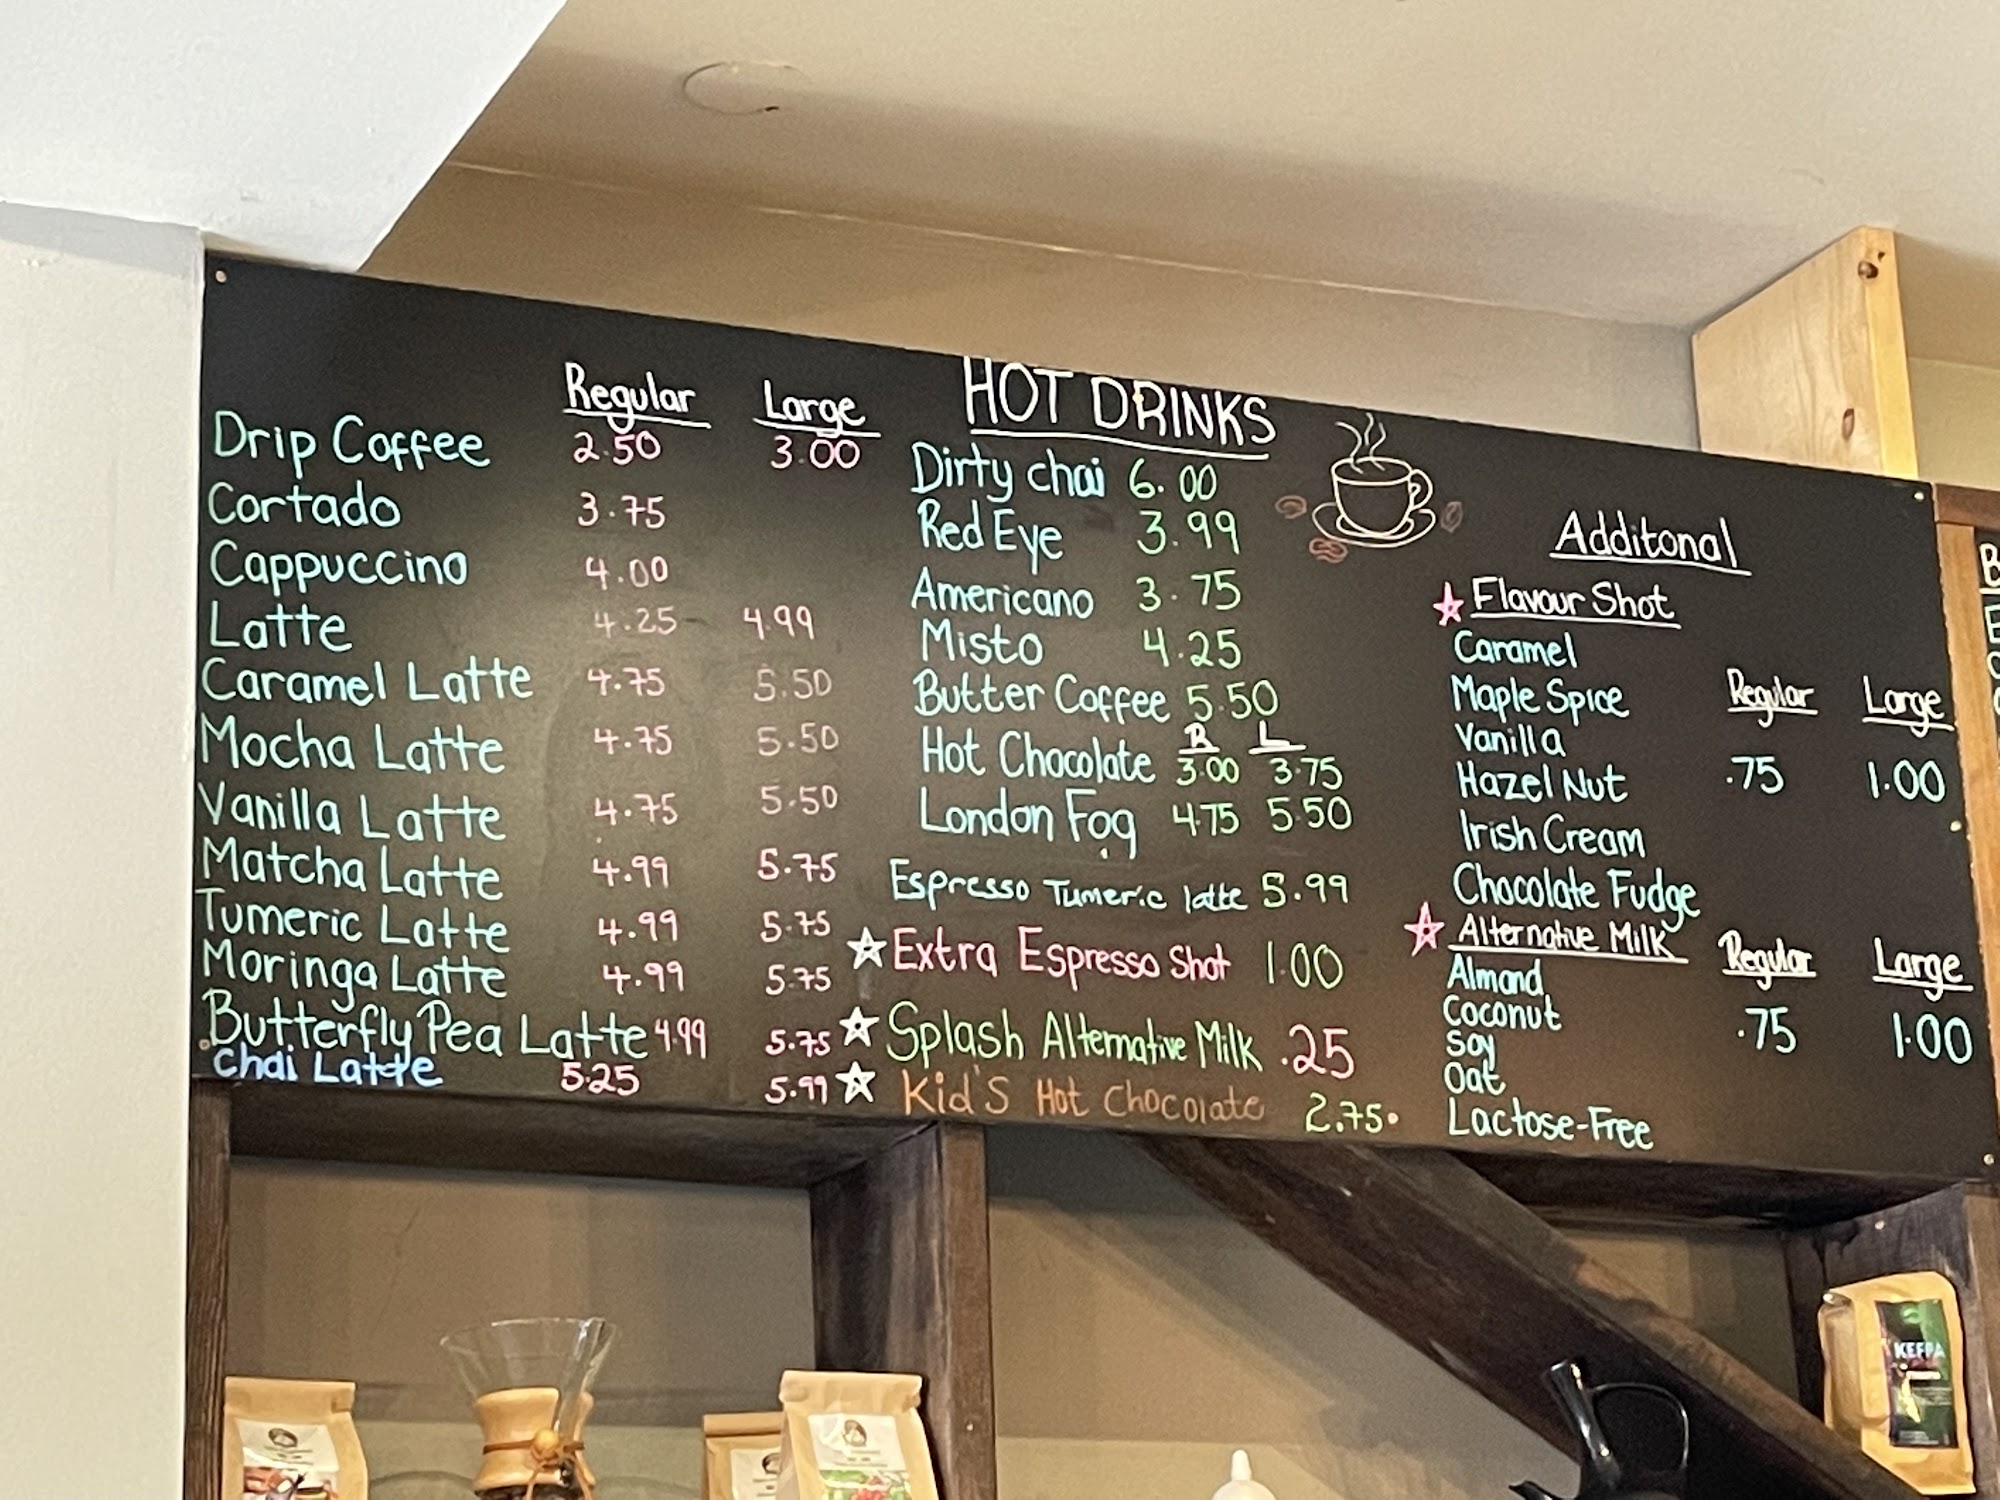 HOT DRINKS
Regular Large
Drip Coffee 2.50 3.00
Cortado 3.75
Cappuccino 4.00
Latte 4.25 4.99
Caramel Latte 4.75 5.50
Mocha Latte 4.75 5.50
Vanilla Latte 4.75 5.50
Matcha Latte 4.99 5.75
Tumeric Latte 4.99 5.75
Moringa Latte 4.99 5.75
Butterfly Pea Latte 4.99 5.75
Chai Latte 5.25 5.99
Dirty chai 6.00
Red Eye 3.99
Americano 3.75
Misto 4.25
Butter Coffee 5.50
R L
Hot Chocolate 3.00 3.75
London Fog 4.75 5.50
Espresso Tumeric latte 5.99
Extra Espresso Shot 1.00
Splash Alternative Milk .25
Kid's Hot Chocolate 2.75
Additonal
Flavour Shot
Caramel
Maple Spice Regular Large
Vanilla
Hazel Nut .75 1.00
Irish Cream
Chocolate Fudge
Alternative Milk Regular Large
Almond
Coconut .75 1.00
Soy
Oat
Lactose-Free